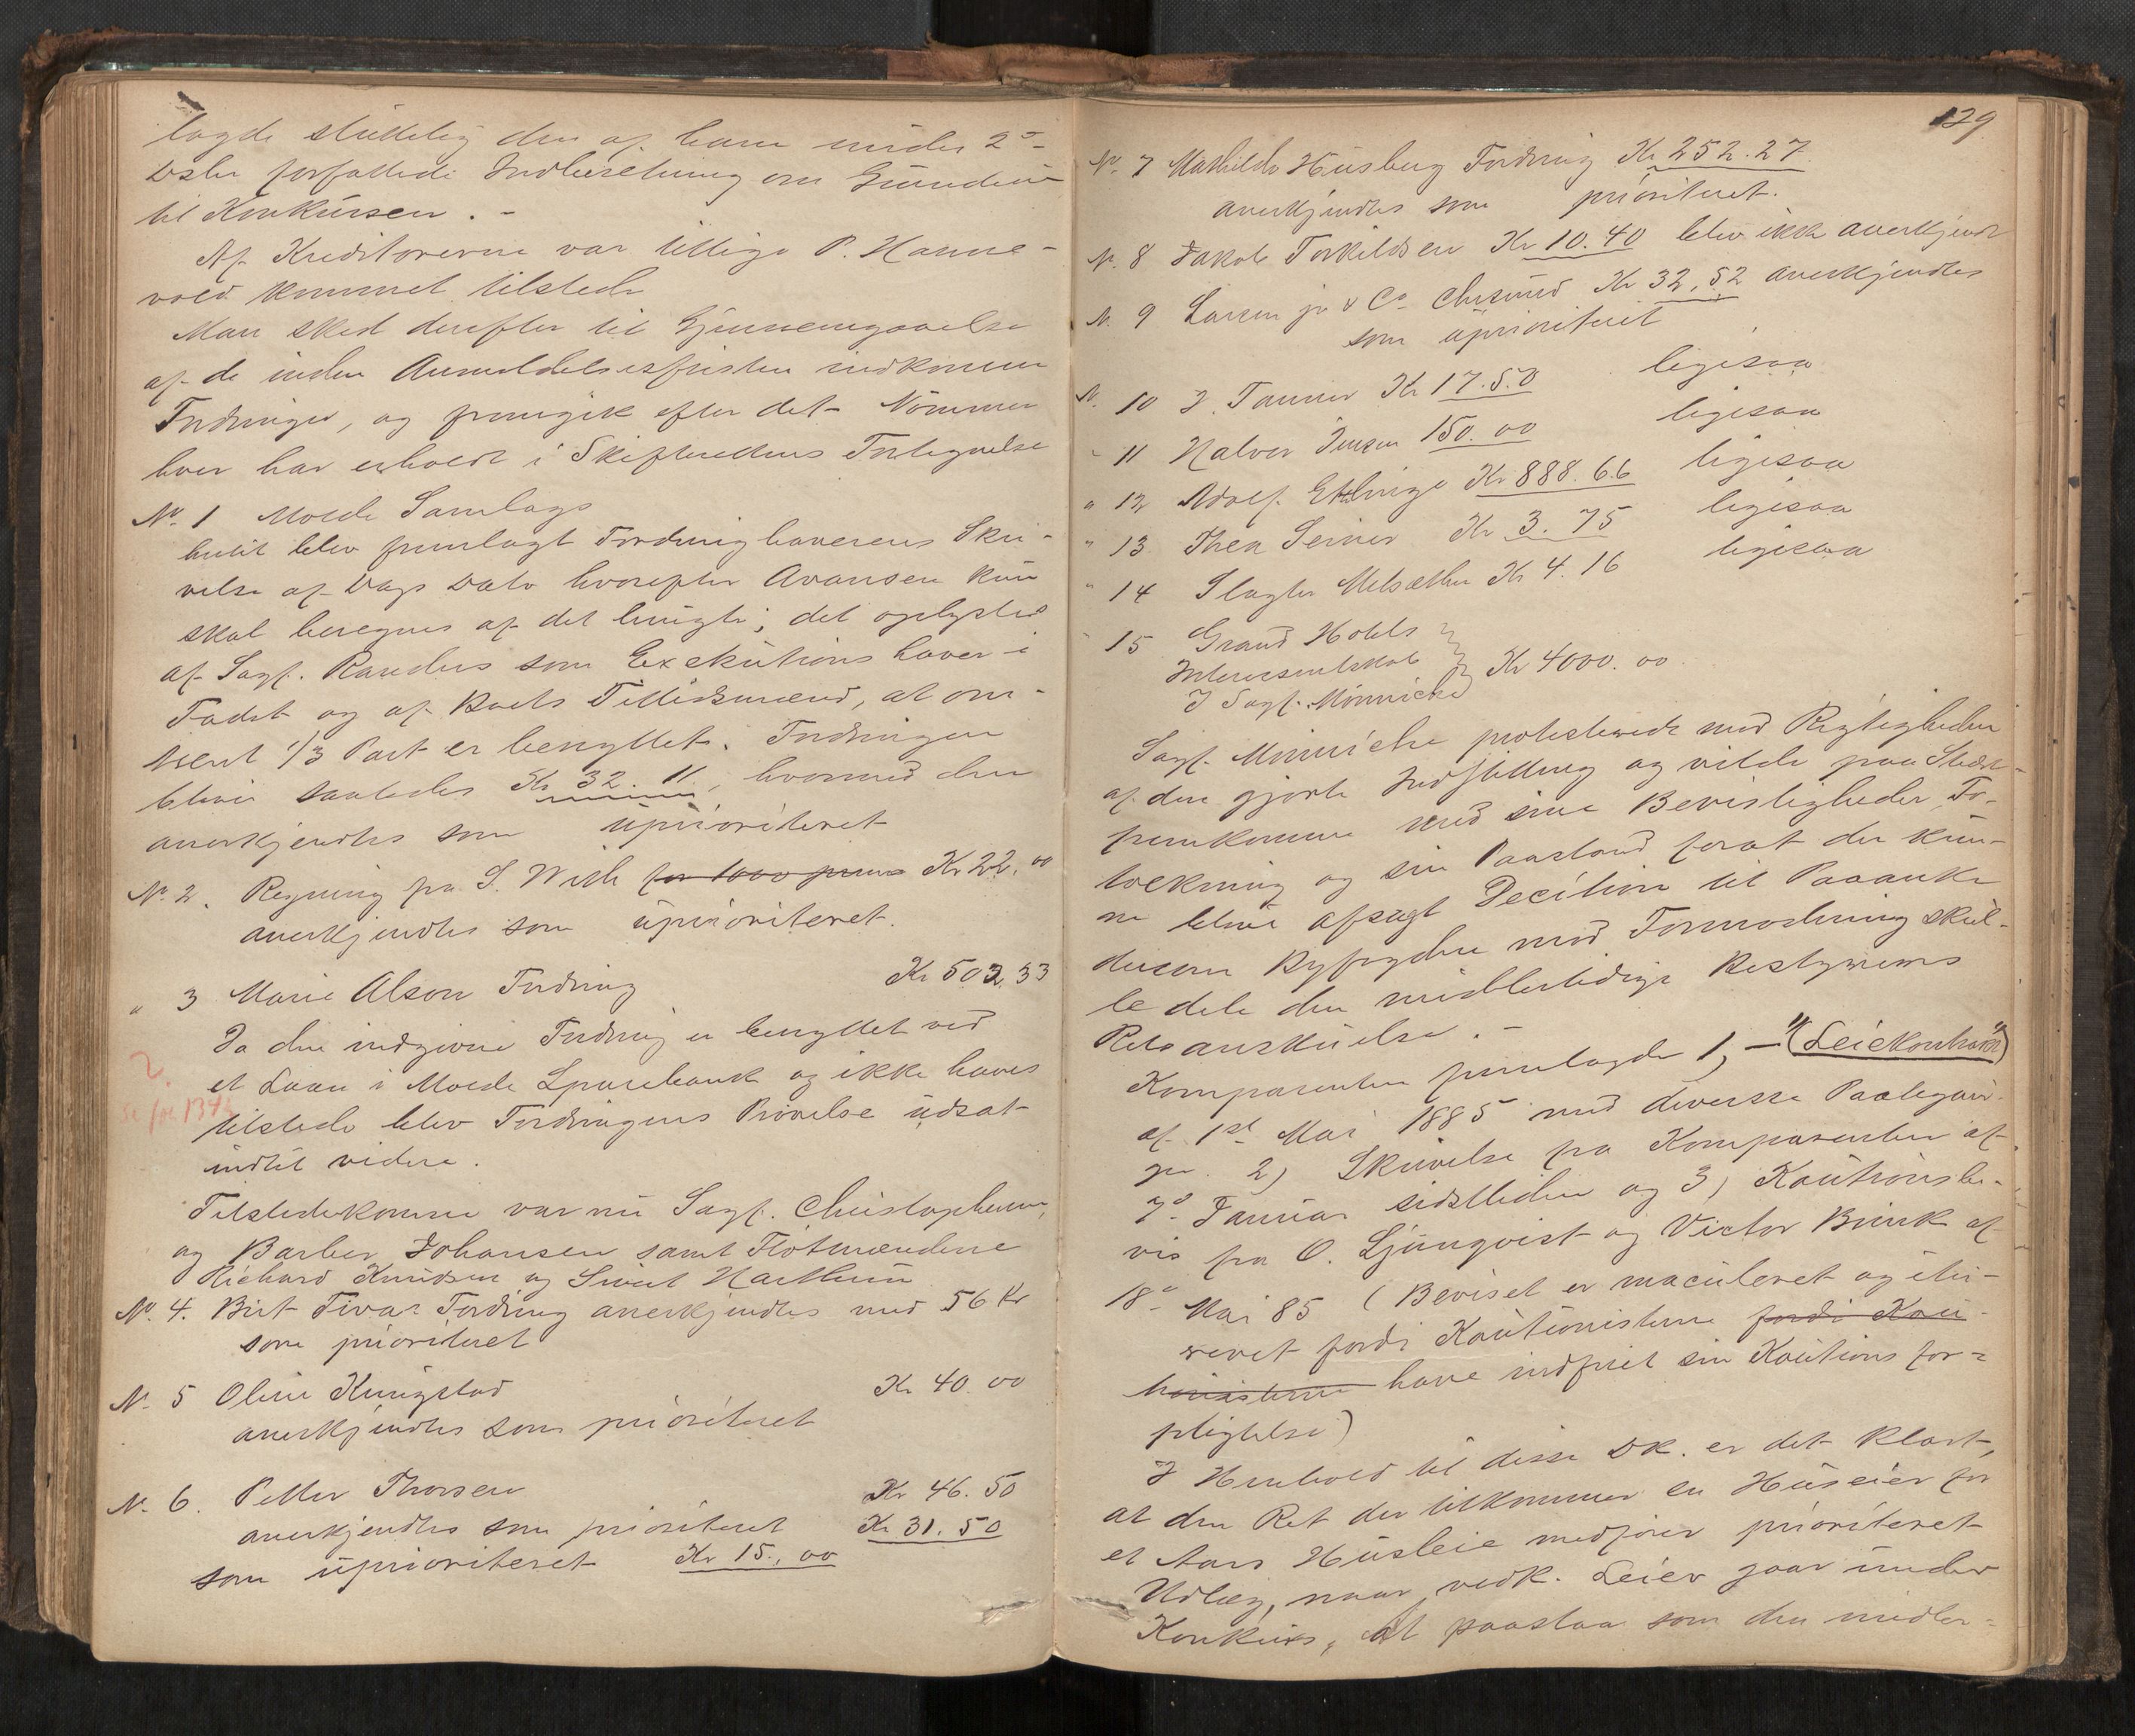 lagde skriftlig den af ham under 2den
ds. forfattede Indberetning om Grundene
til Konkursen. -
Af Kreditorerne var tillige P. Hanne-
vold kommet tilstede
Man skred derefter til Gjennemgaaelse
af de inden Anmeldelsesfristen indkomne
Fordringer, og fremgik efter det Nummer
hver har erholdt i Skifterettens Fortegnelse
No. 1 Molde Samlags
hertil blev fremlagt Fordringhaverens Skri-
velse af Dags Dato hvorefter Avansen kun
skal beregnes af det brugte; det oplystes
af Sagf. Randers som Exekutionshaver i
Fadet og af Boets Tillidsmænd, at om-
trent 1/3 Part er benyttet. Fordringen
bliver saaledes Kr 32. 11, hvormed den
anerkjendtes som uprioriteret
No. 2. Regning fra S. Wiik for 1000 Kr 22.00
anerkjendtes som uprioriteret.
" 3 Marie Alson Fordring Kr 502.33
Da den indgivne Fordring er benyttet ved
et Laan i Molde Sparebank og ikke haves
2.
se fol 134
tilstede blev Fordringens Prøvelse udsat
indtil videre.
Tilstedekomne var nu Sagf. Christophersen,
og Barber Johansen samt Flotmændene
Richard Knudsen og Sivert
No. 4. Birt Tivar Fordring anerkjendtes med 56 Kr
som prioriteret
N. 5 Oline Kringstad Kr 40.00
anerkjendtes som prioriteret
N. 6. Petter Thorsen Kr 46.50
anerkjendtes som prioriteret Kr 31.50
som uprioriteret Kr 15.00
129
N. 7 Mathilde Husberg Fordring Kr 252.27
anerkjendtes som prioriteret.
N. 8 Jakob Torkildsen Kr 10.40 blev ikke anerkjendt
N. 9 Larsen jr & Co Chrsund Kr 32,52 anerkjendtes
som uprioriteret
N. 10 J. Tanner Kr 17.50 ligesaa
" 11 Halvor Jensen 150.00 ligesaa
" 12 Adolf Ettlinge Kr 888.66 ligesaa
" 13 Thea Seiner Kr 3.75 ligesaa
" 14 Slagter Melsæther Kr 4.16 ligesaa
" 15 Grand Hotels
Interessentskab Kr 4000.00
J Sagf. Minniche
Sagf. Minniche protesterede mod Rigtigheden
af den gjorte Indstilling og vilde paa Stedet
fremkomme med sine Bevisligheder, For-
tolkning og sin Paastand forat der kun-
ne blive afsagt Decision til Paaanke
dersom Byfogden mod Formodning skul-
le dele den midlertidige Bestyrers
Retsanskuelse. -
Komparenten fremlagde 1, - "(Leiekontrakt")
af 1st Mai 1885 med diverse Paategnin-
ger. 2) Skrivelse fra Komparenten af
7de Januar sidstleden og 3) Kautionsbe-
vis fra O. Ljungqvist og Victor Brink af
18de Mai 85 (Beviset er maculeret og itu-
revet fordi Kautionisterne fordi Kau-
tionisterne have indfriet sin Kautionsfor-
pligtelse)
I Henhold til disse Dk. er det klart,
at den Ret der tilkommer en Huseier for
et Aars Husleie medfører prioriteret
Udlæg, naar vedk. Leier gaar under
Konkurs, at paastaa som den midler-